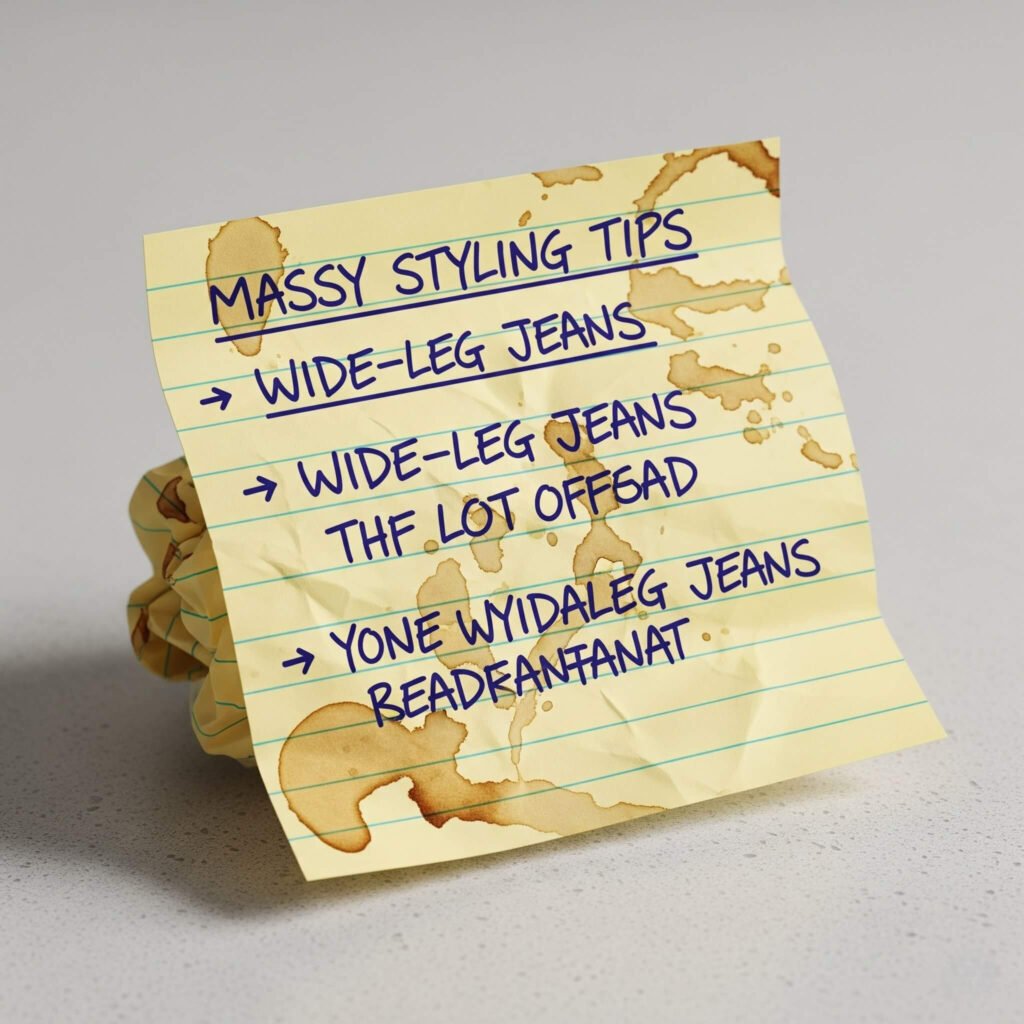 MASSY STYLING TIPS
→ WIDE-LEG JEANS
→ WIDE-LEG JEANS
THF LOT OFFGAD
→ YONE WYIDALEG JEANS